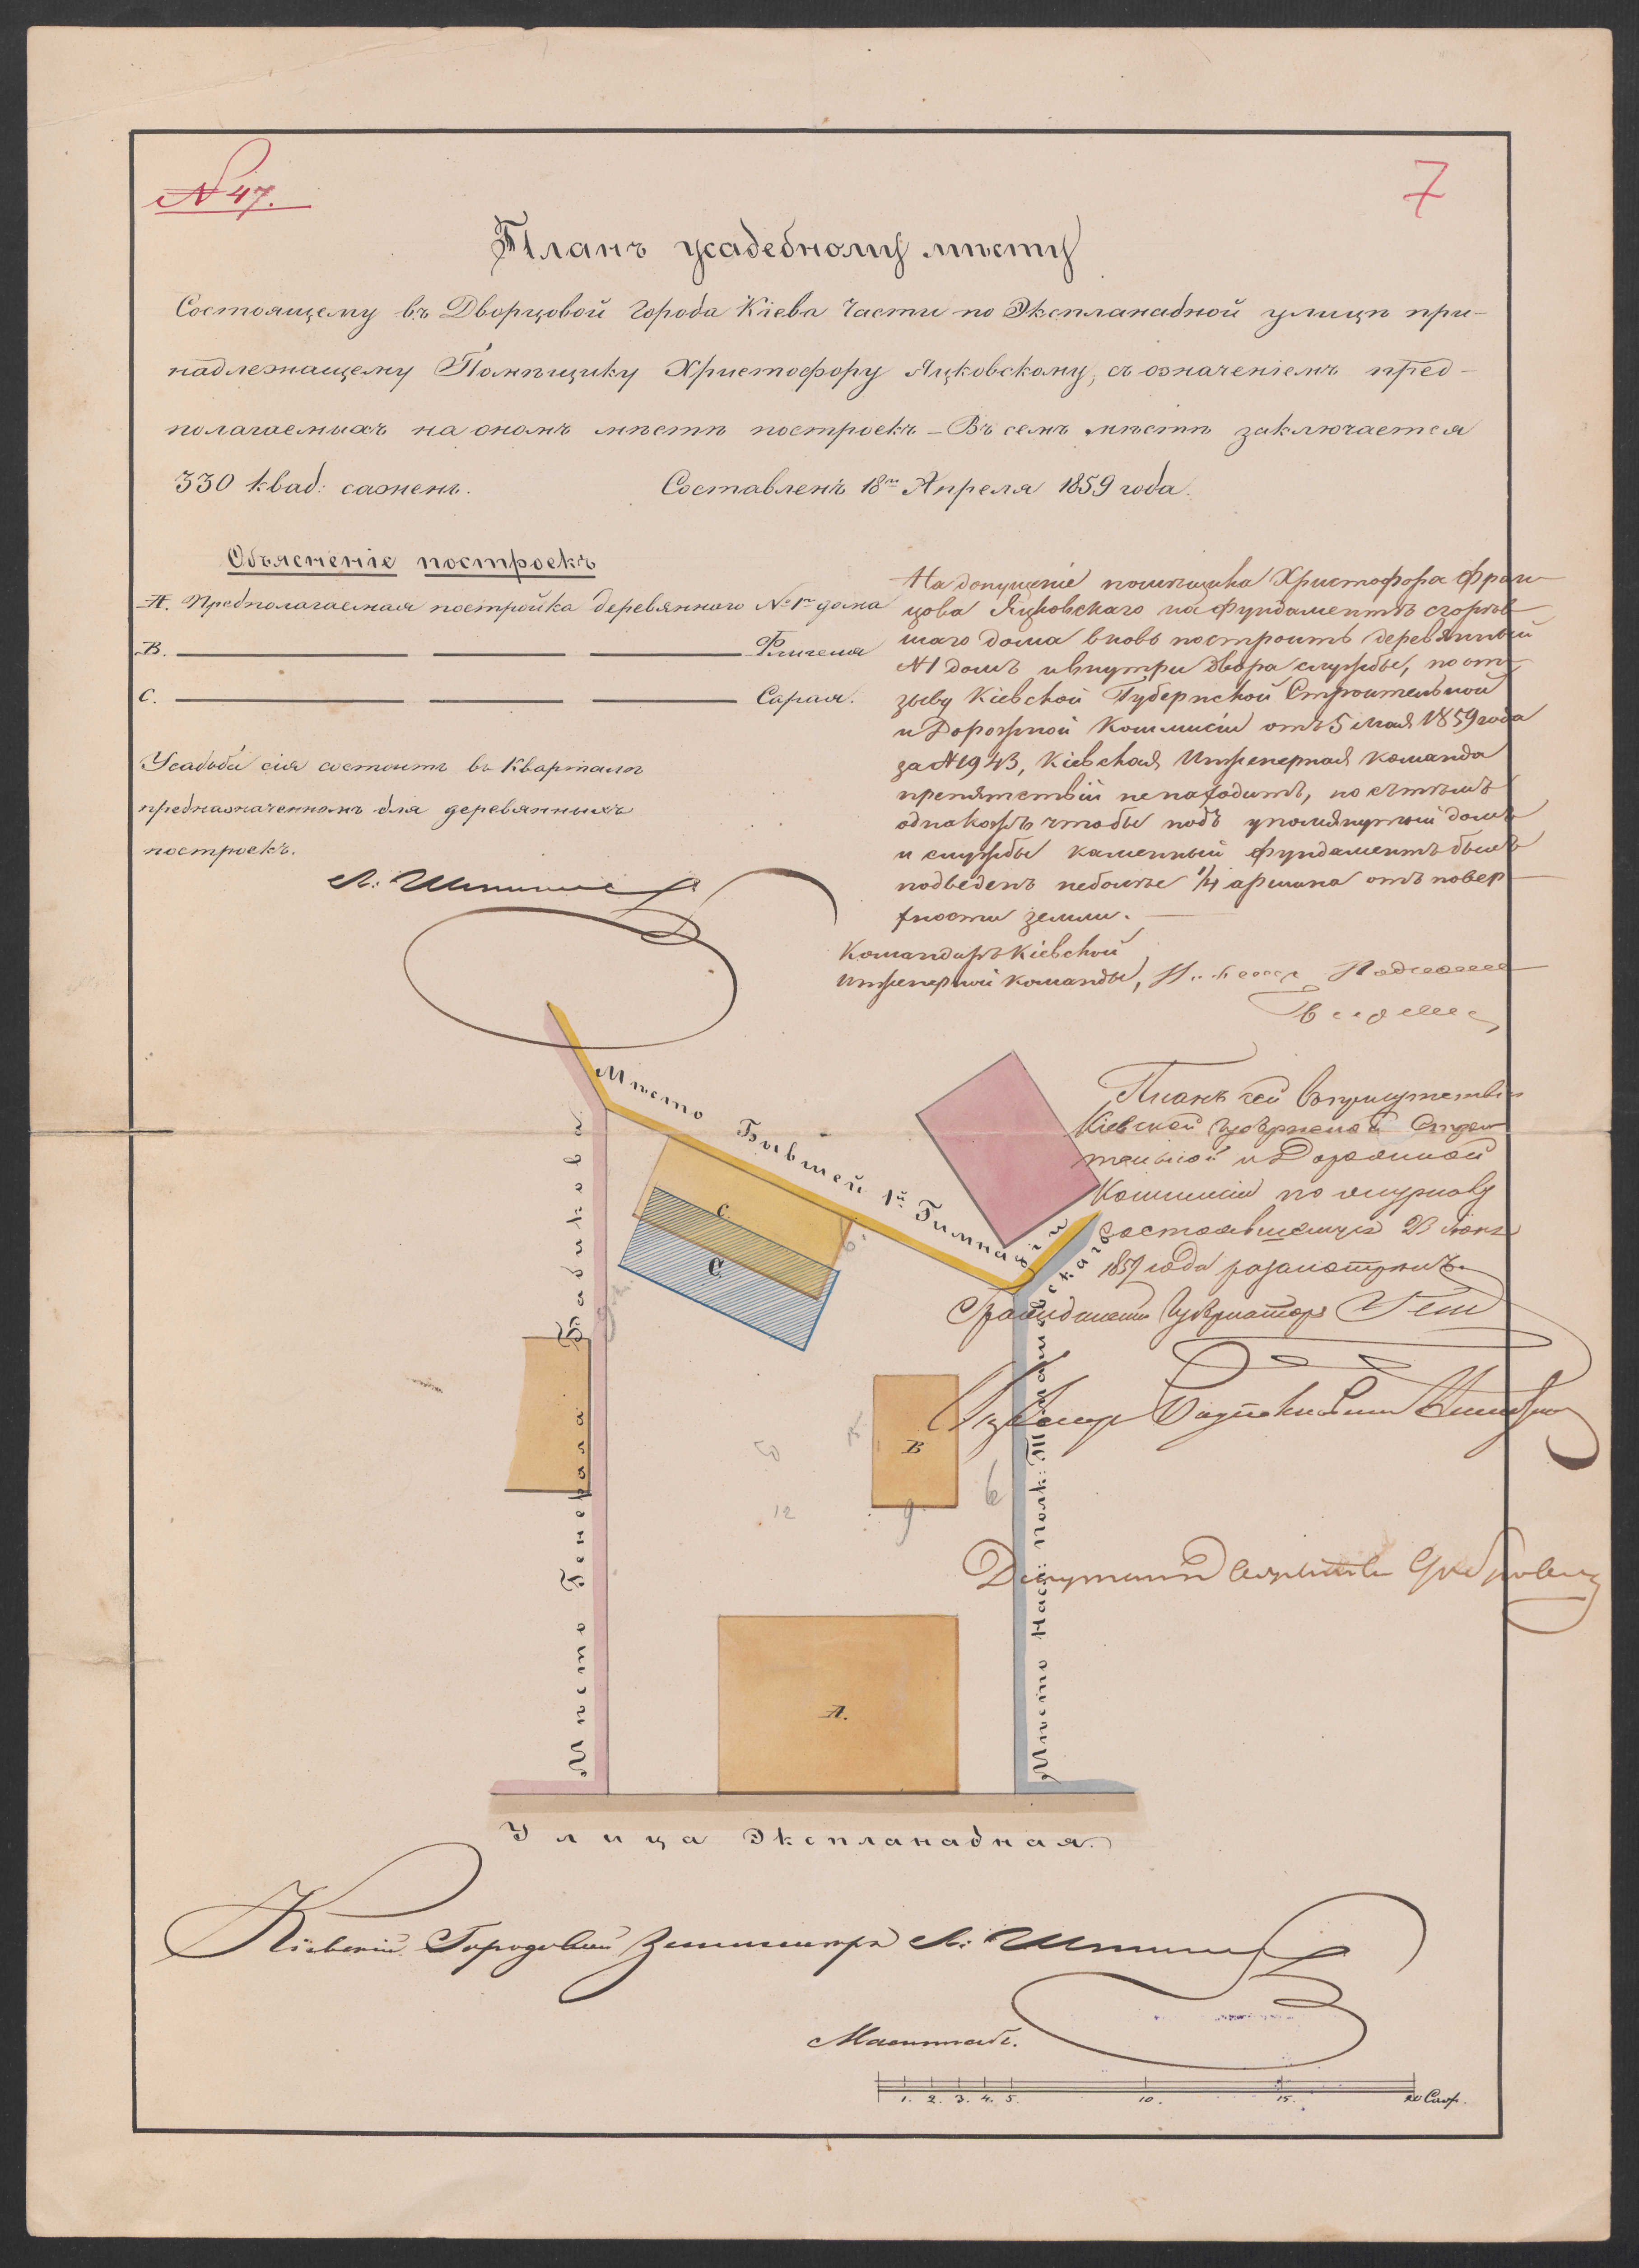 № 47.
7
Планъ усадебному мѣсту
Состоящему въ Дворцовой города Кіева части по Эксланадной улицѣ при-
надлежащему Помѣщику Христофору Яцковскому, съ означеніемъ пред-
полагаемыхъ на ономъ мѣстѣ построекъ – Въ семъ мѣстѣ заключается
330 квад: сажень. Составленъ 18го Апреля 1859 года.
Объясненіе построекъ
А. Предполагаемая постройка деревяннаго № 1го дома
В. Флигеля
С. Сарая.
Усадьба сія состоитъ въ кварталѣ
предназначенномъ для деревянныхъ
построекъ.
На допущеніе помѣщика Христофора Фран-
цова Яцковскаго на фундаментѣ сгорѣв-
шаго дома вновь построить деревянный
№ 1 домъ и внутри двора службы, по от-
зыву Кіевской Губернской Строительной
и Дорожной Коммисіи отъ 5 Мая 1859 года
за № 1943, Кіевская Инженерная команда
препятствій ненаходитъ, но съ тѣмъ
однакожъ чтобы подъ упомянутый домъ
и службы каменный фундаментъ былъ
подведенъ неболѣе 1/4 аршина отъ повер-
хности земли.
Командиръ Кіевской
Инженерной команды,
Планъ сей въ присутствіи
Кіевской Губернской Строи-
тельной и Дорожной
Коммисіи по журналу
состоявшемуся
года разсмотрѣнъ.
Гражданскій Губернаторъ
Мѣсто Бывшей 1й Гимназіи
Мѣсто Генерала Бибикова
С.
С.
6.
15
В
9
6
12
А.
Улица Эксланадная.
Кіевскій Городовой Землемѣръ
Масштабъ.
1. 2. 3. 4. 5. 10. 15. 20 Саж.